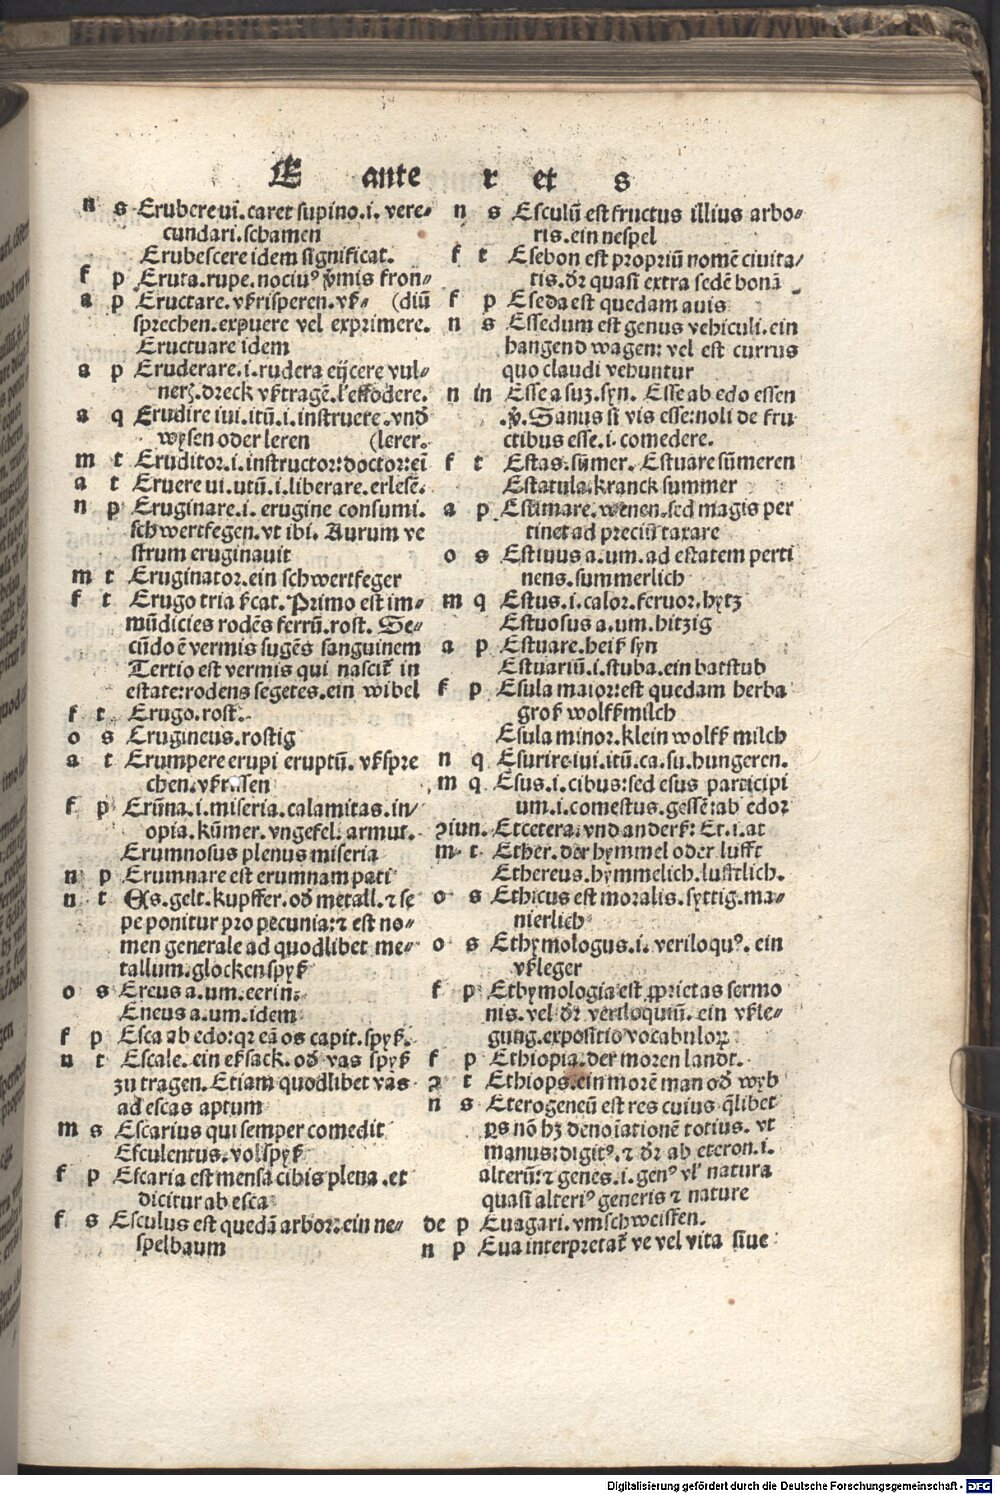 E ante r et s
n s Erubere ui. caret supino. i. vere⸗
cundari. schamen
Erubescere idem significat.
f p Eruta. rupe. nociuꝰ fron⸗
a p Eructare. vßrisperen. vß⸗ (diū
sprechen. expuere vel exprimere.
Eructuare idem
a p Eruderare. i. rudera eijcere vul⸗
dreck vßtragē. effodere.
a q Erudire iui. itū. i. instruere. vnd
wysen oder leren (lerer.
m t Eruditor. i. instructor: doctor: ei
a t Eruere ui. utū. i. liberare. erlesē.
n p Eruginare. i. erugine consumi.
schwertfegen. vt ibi. Aurum ve
strum eruginauit
m t Eruginator. ein schwertfeger
f t Erugo tria ßcat. Primo est im⸗
mūdicies rodēs ferrū. rost. Se⸗
cūdo ē vermis sugēs sanguinem
Tertio est vermis qui nascit in
estate: rodens segetes. ein wibel
f t Erugo. rost.
o s Erugineus. rostig
a t Erumpere erupi eruptū. vßspre
chen. vßrissen
f p Erūna. i. miseria. calamitas. in⸗
opia. kūmer. vngefel. armut.
Erumnosus plenus miseria
n p Erumnare est erumnam pati
n t Es. gelt. kupffer. od metall. ⁊ se
pe ponitur pro pecunia: ⁊ est no⸗
men generale ad quodlibet me⸗
tallum. glockenspyß
o s Ereus a. um. eerin.
Eneus a. um. idem
f p Esca ab edo: qꝛ eā os capit. spyß.
n t Escale. ein eßsack. od vas spyß
zu tragen. Etiam quodlibet vas
ad escas aptum
m s Escarius qui semper comedit
Esculentus. vol spyß
f p Escaria est mensa cibis plena. et
dicitur ab esca
f s Esculus est quedā arbor: ein ne⸗
spelbaum
n s Esculū est fructus illius arbo⸗
ris. ein nespel
f t Esebon est propriū nomē ciuita⸗
tis. dr quasi extra sedē bonā
f p Eseda est quedam auis
n s Essedum est genus vehiculi. ein
hangend wagen: vel est currus
quo claudi vehuntur
n in Esse a suꝫ. syn. Esse ab edo essen
Sanus si vis esse: noli de fru
ctibus esse. i. comedere.
f t Estas. sūmer. Estuare sūmeren
Estatula. kranck summer
a p Estimare. wenen. sed magis per
tinet ad preciū taxare
o s Estiuus a. um. ad estatem perti
nens. summerlich
m q Estus. i. calor. feruor. hytz
Estuosus a. um. hitzig
a p Estuare. heiß syn
Estuariū. i. stuba. ein batstub
f p Esula maior: est quedam herba
groß wolffßmilch
Esula minor. klein wolffß milch
n q Esurire iui. itū. ca. su. hungeren.
m q Esus. i. cibus: sed esus participi
um. i. comestus. gessē: ab edor
ꝯiun. Etcetera. vnd anderß: Et. i. at
m t Ether. der hymmel oder lufft
Ethereus. hymmelich. luftlich.
o s Ethicus est moralis. syttig. ma⸗
nierlich
o s Ethymologus. i. veriloquꝰ. ein
vßleger
f p Ethymologia est ꝓprietas sermo
nis. vel dr veriloquium. ein vßle⸗
gung. expositio vocabuloꝝ
f p Ethiopia. der moren landt.
a t Ethiops. ein morē man od wyb
n s Eterogeneū est res cuius qlibet
ps nō hꝫ denoiationē totius. vt
manus: digitꝰ. ⁊ dr ab eteron. i.
alterū: ⁊ genes. i. genꝰ vl natura
quasi alteriꝰ generis ⁊ nature
de p Euagari. vmschweiffen.
n p Eua interpretat ve vel vita siue
Digitalisierung gefördert durch die Deutsche Forschungsgemeinschaft - DFG